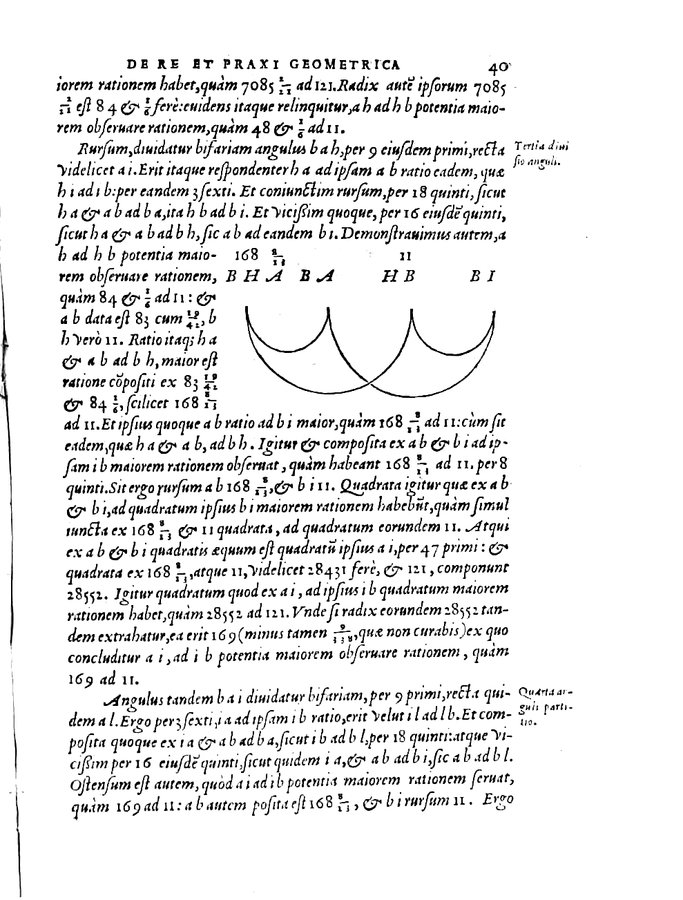 DE RE ET PRAXI GEOMETRICA 40
iorem rationem habet, quàm 7085 2/11 ad 121. Radix autē ipsorum 7085
est 84 & 1/6 ferè: euidens itaque relinquitur, a h ad h b potentia maio-
rem obseruare rationem, quàm 48 & 1/6 ad 11.
Rursum, diuidatur bifariam angulus b a h, per 9 eiusdem primi, recta
Tertia diui
sio anguli.
videlicet a i. Erit itaque respondenter h a ad ipsam a b ratio eadem, quæ
h i ad i b: per eandem 3 sexti. Et coniunctim rursum, per 18 quinti, sicut
h a & a b ad b a, ita h b ad b i. Et vicißim quoque, per 16 eiusdē quinti,
sicut h a & a b ad b h, sic a b ad eandem b i. Demonstrauimus autem, a
h ad h b potentia maio-
168 11
rem obseruare rationem,
B H A B A H B B I
quàm 84 & 1/6 ad 11: &
a b data est 83 cum 19/42, b
h verò 11. Ratio itaq; h a
& a b ad b h, maior est
ratione cōpositi ex 83 19/42
& 84 1/6, scilicet 168 8/13
ad 11. Et ipsius quoque a b ratio ad b i maior, quàm 168 8/13 ad 11: cùm sit
eadem, quæ h a & a b, ad b h. Igitur & composita ex a b & b i ad ip-
sam i b maiorem rationem obseruat, quàm habeant 168 8/13 ad 11. per 8
quinti. Sit ergo rursum a b 168 8/13, & b i 11. Quadrata igitur quæ ex a b
& b i, ad quadratum ipsius b i maiorem rationem habebūt, quàm simul
iuncta ex 168 8/13 & 11 quadrata, ad quadratum eorundem 11. Atqui
ex a b & b i quadratis æquum est quadratū ipsius a i, per 47 primi: &
quadrata ex 168 8/13, atque 11, videlicet 28431 ferè, & 121, componunt
28552. Igitur quadratum quod ex a i, ad ipsius i b quadratum maiorem
rationem habet, quàm 28552 ad 121. Vnde si radix eorundem 28552 tan-
dem extrahatur, ea erit 169 (minus tamen quæ non curabis) ex quo
concluditur a i, ad i b potentia maiorem obseruare rationem, quàm
169 ad 11.
Angulus tandem b a i diuidatur bifariam, per 9 primi, recta qui-
Quarta an-
guli parti-
tio.
dem a l. Ergo per 3 sexti, i a ad ipsam i b ratio, erit velut i l ad l b. Et com-
posita quoque ex i a & a b ad b a, sicut i b ad b l, per 18 quinti: atque vi-
cißim per 16 eiusdē quinti, sicut quidem i a, & a b ad b i, sic a b ad b l.
Ostensum est autem, quòd a i ad i b potentia maiorem rationem seruat,
quàm 169 ad 11: a b autem posita est 168 8/13, & b i rursum 11. Ergo